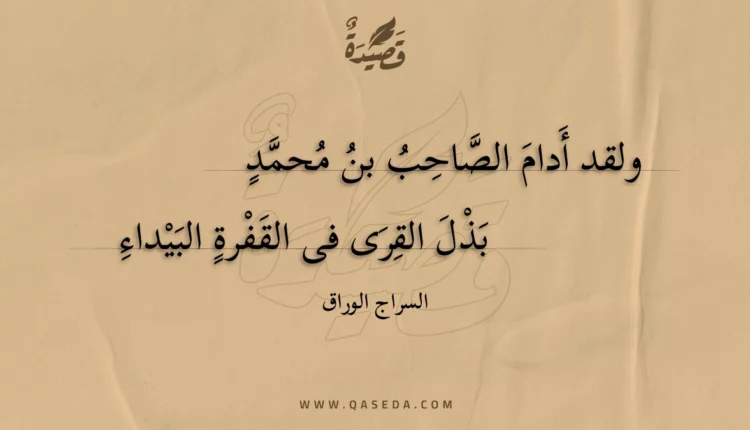 قَصِيدَةٌ
ولقد أَدامَ الصَّاحِبُ بنُ مُحمَّدٍ
بَذْلَ القِرَى فى القَفْرةِ البَيْداءِ
السراج الوراق
WWW.QASEDA.COM